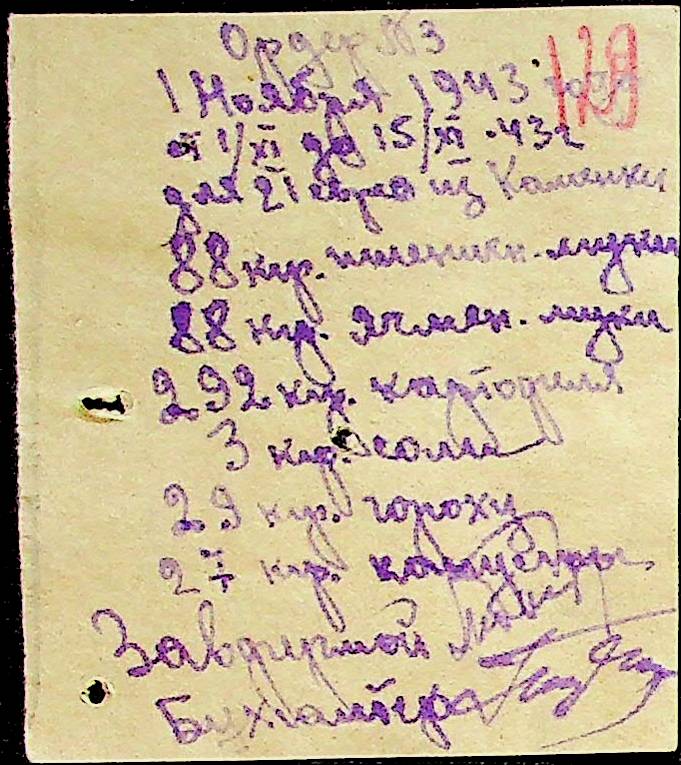 Ордер №3 129
1 Ноября 1943 года
от 1/XI до 15/XI 43г
для 21 евр. из Каменки
88 кгр. пшеничн. муки
88 кгр. ячмен. муки
292 кгр. картофеля
3 кгр. соли
29 кгр. гороху
27 кгр. капусты
Завфермой
Бухгалтер